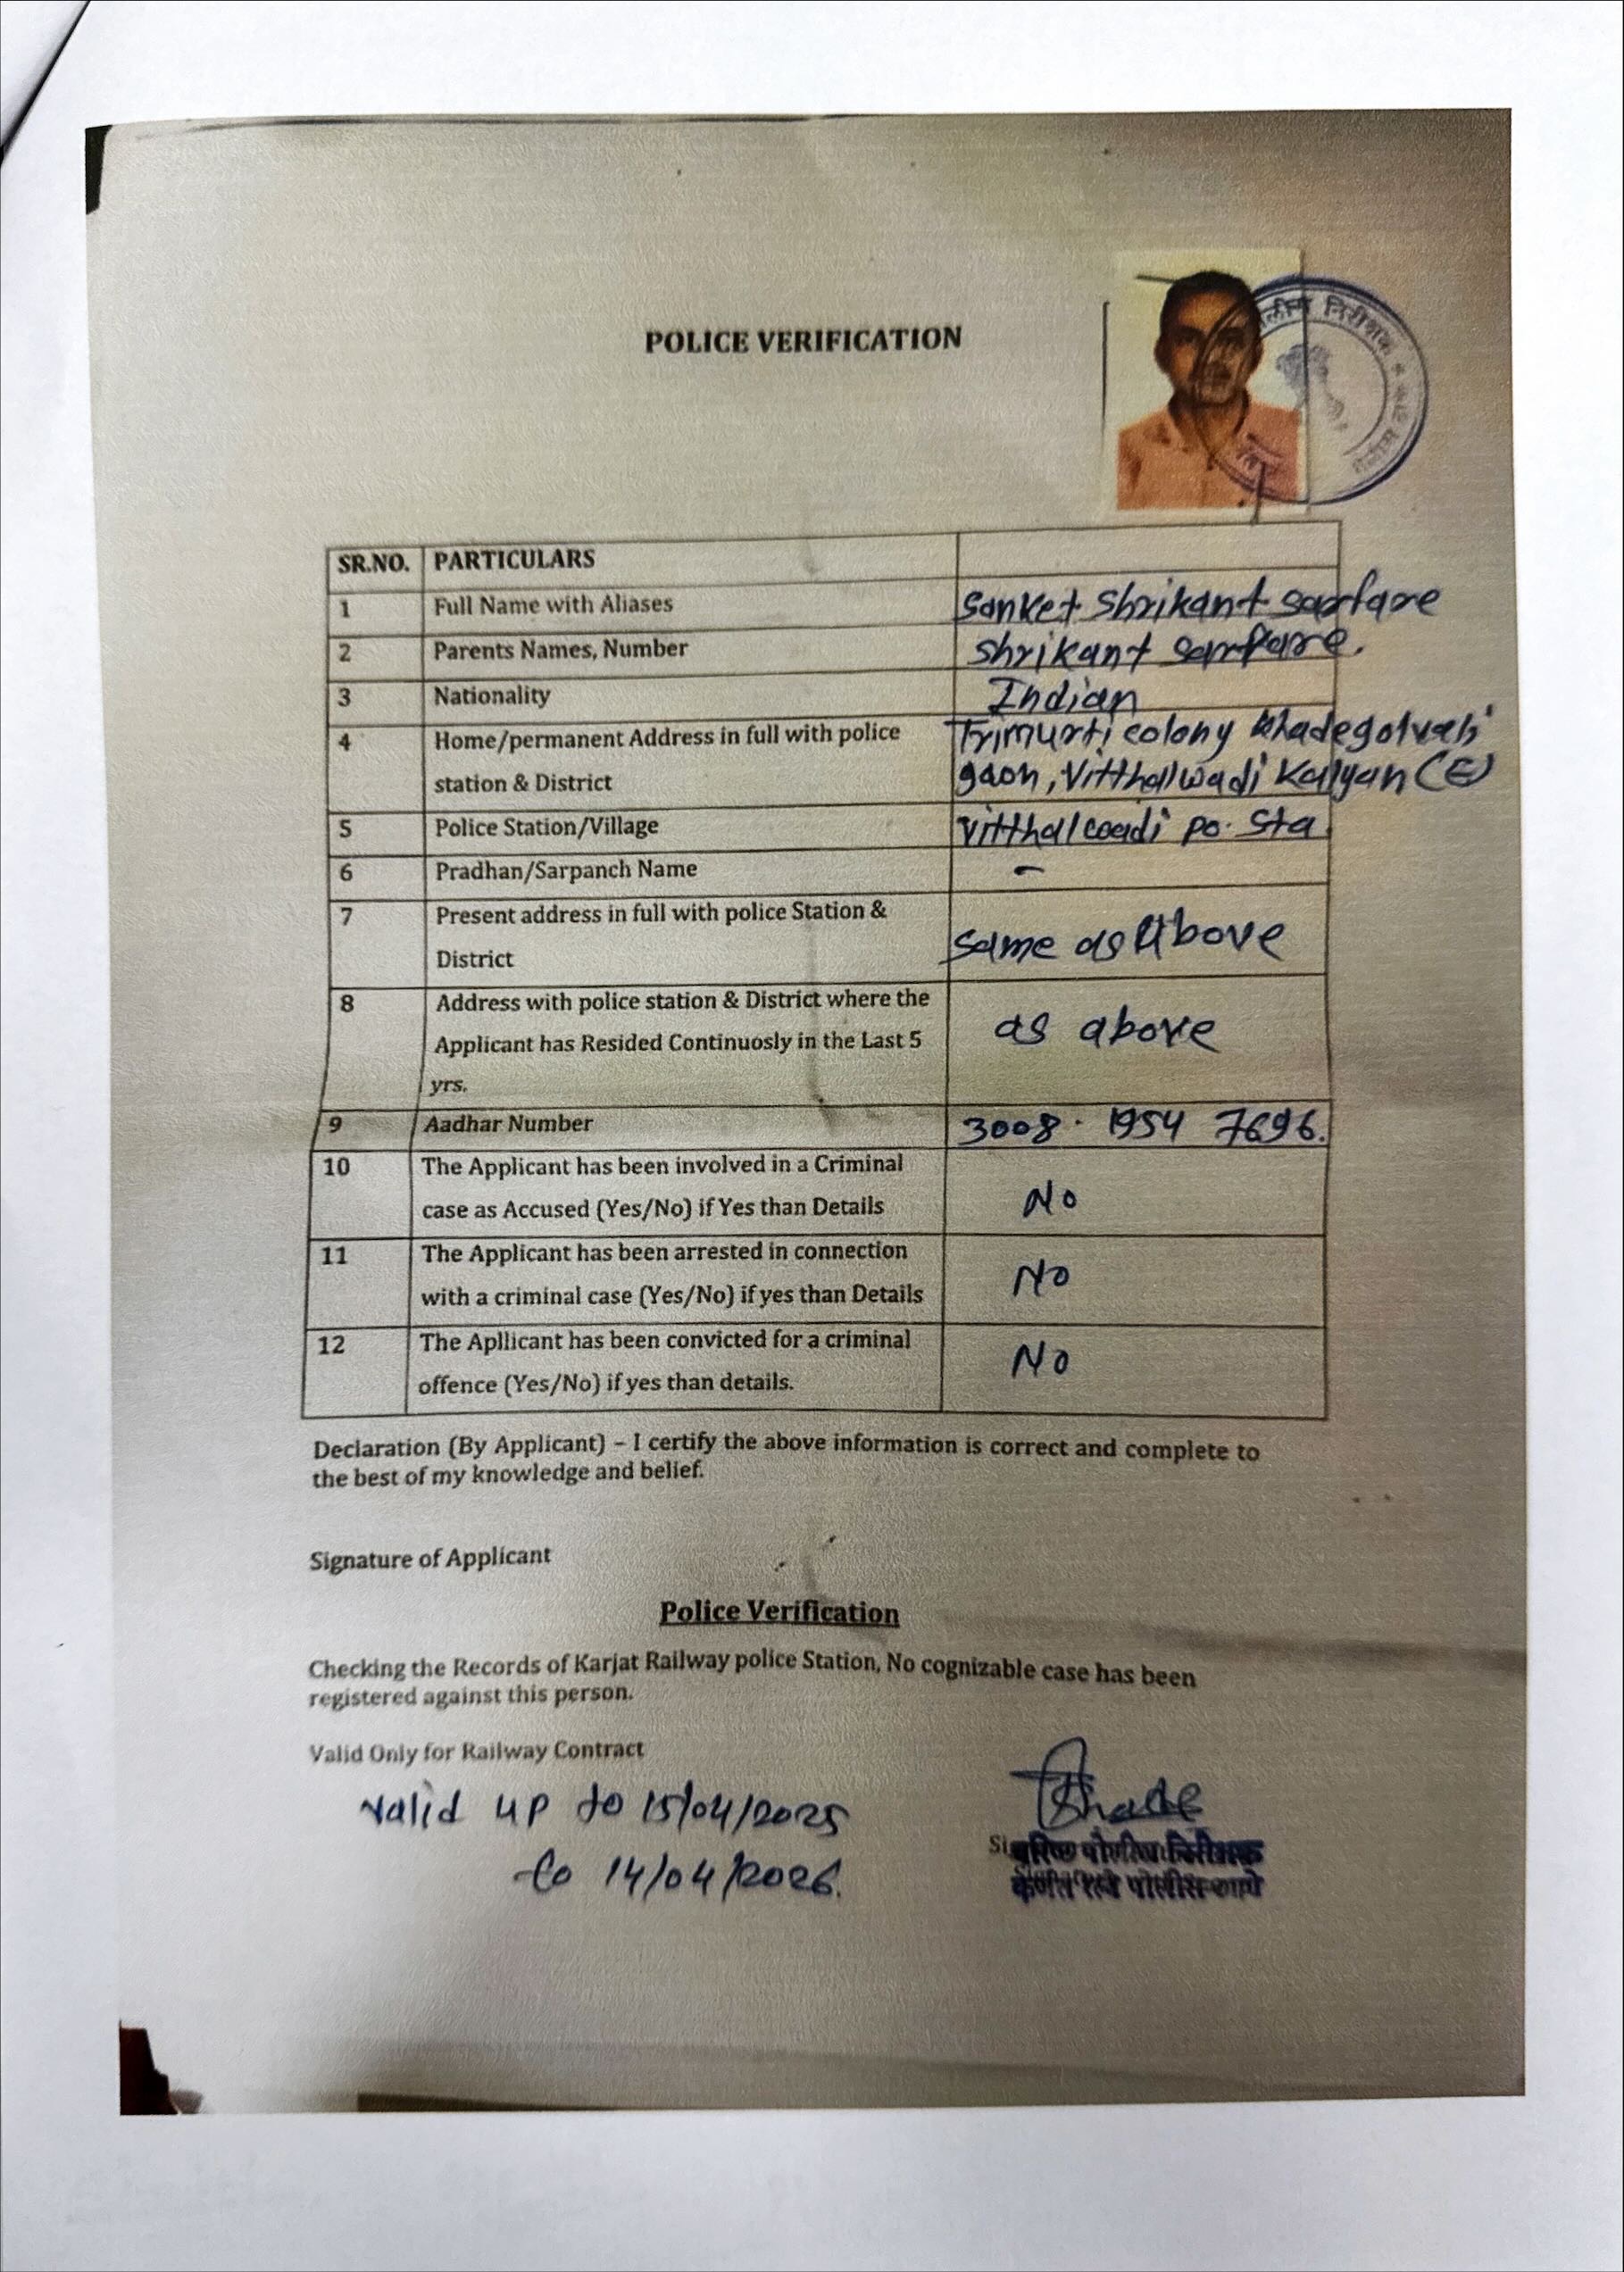 POLICE VERIFICATION
पोलीस निरीक्षक
SR.NO. PARTICULARS
1 Full Name with Aliases Sanket Shrikant sarfare
2 Parents Names, Number Shrikant sarfare.
3 Nationality Indian
4 Home/permanent Address in full with police Trimurti colony khadegolvali
station & District gaon, Vitthalwadi Kalyan (E)
5 Police Station/Village Vitthalwadi po. Sta
6 Pradhan/Sarpanch Name -
7 Present address in full with police Station & Same as Above
District
8 Address with police station & District where the as above
Applicant has Resided Continuosly in the Last 5
yrs.
9 Aadhar Number 3008 · 1954 7696.
10 The Applicant has been involved in a Criminal No
case as Accused (Yes/No) if Yes than Details
11 The Applicant has been arrested in connection No
with a criminal case (Yes/No) if yes than Details
12 The Apllicant has been convicted for a criminal No
offence (Yes/No) if yes than details.
Declaration (By Applicant) – I certify the above information is correct and complete to
the best of my knowledge and belief.
Signature of Applicant
Police Verification
Checking the Records of Karjat Railway police Station, No cognizable case has been
registered against this person.
Valid Only for Railway Contract
valid up to 15/04/2025
to 14/04/2026.
वरिष्ठ पोलीस निरीक्षक
कर्जत रेल्वे पोलीस ठाणे